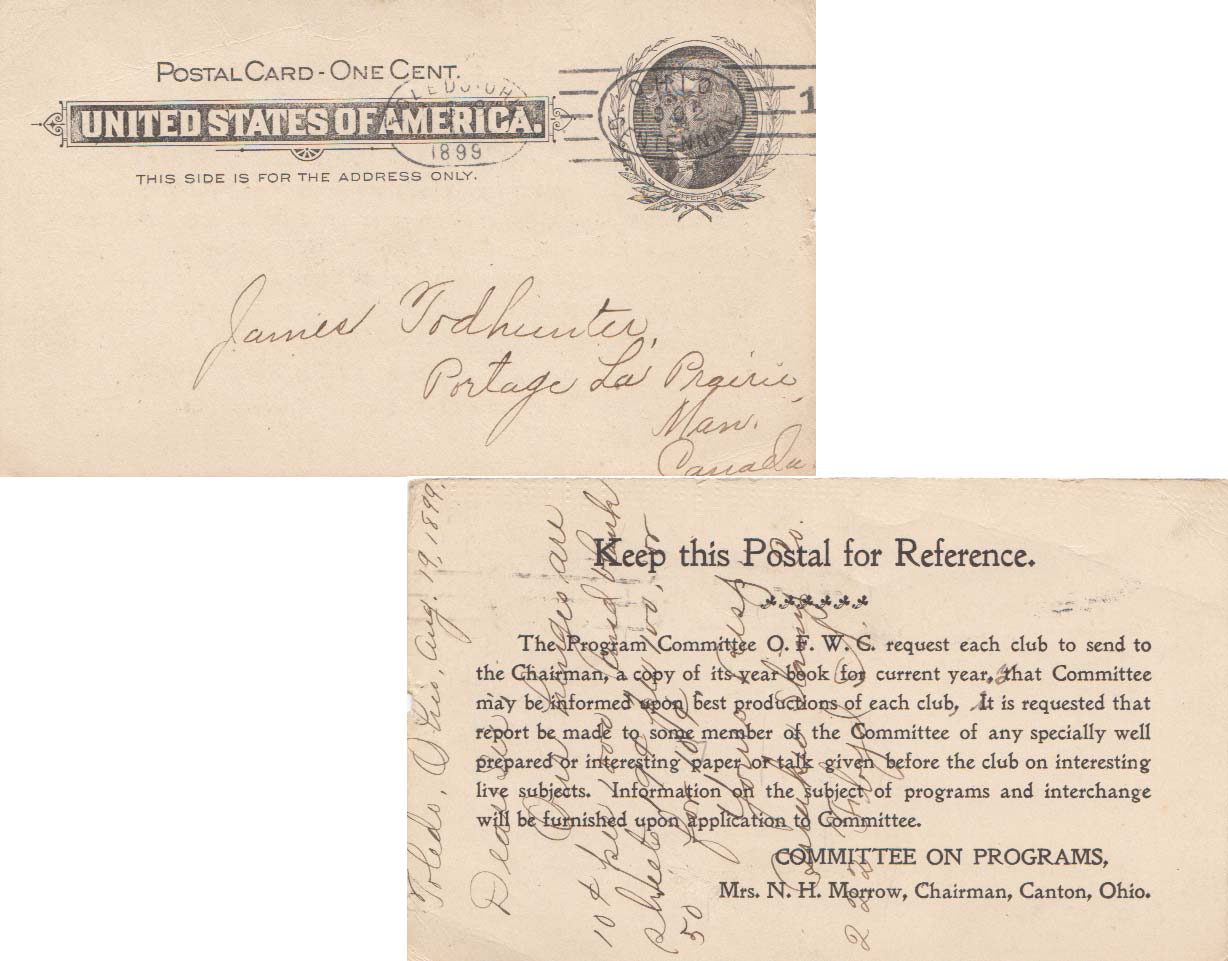 POSTAL CARD - ONE CENT.
UNITED STATES OF AMERICA.
THIS SIDE IS FOR THE ADDRESS ONLY.
TOLEDO, OHIO
1899
OHIO
CENTENNIAL
1
JEFFERSON
James Todhunter,
Portage La Prairie,
Man.
Canada.
Keep this Postal for Reference.
The Program Committee O. F. W. C. request each club to send to
the Chairman, a copy of its year book for current year, that Committee
may be informed upon best productions of each club, It is requested that
report be made to some member of the Committee of any specially well
prepared or interesting paper or talk given before the club on interesting
live subjects. Information on the subject of programs and interchange
will be furnished upon application to Committee.
COMMITTEE ON PROGRAMS,
Mrs. N. H. Morrow, Chairman, Canton, Ohio.
Toledo, Ohio, Aug. 19, 1899.
Dear Sir
Our hinges are
10¢ per 1000 and blank
sheets 90¢ for 100, or
50 for 10¢
Yours Resp
Stamp Co.